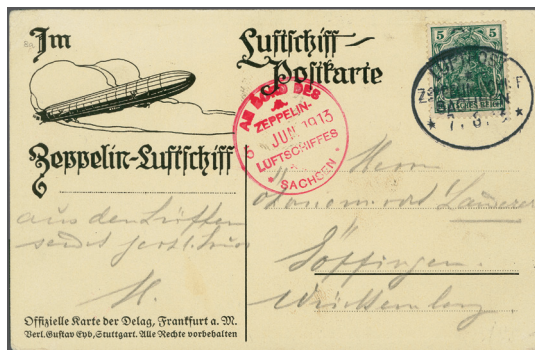 Im
Luftschiff-
Postkarte
Zeppelin-Luftschiff
5 5
AN BORD DES
ZEPPELIN-
5 JUN. 1913
LUFTSCHIFFES
* SACHSEN *
LUFTPOST
SACHSEN
aus den Lüften
sendet
M.
Herrn
Göppingen.
Württemberg.
Offizielle Karte der Delag, Frankfurt a. M.
Verl. Gustav Eyb, Stuttgart. Alle Rechte vorbehalten